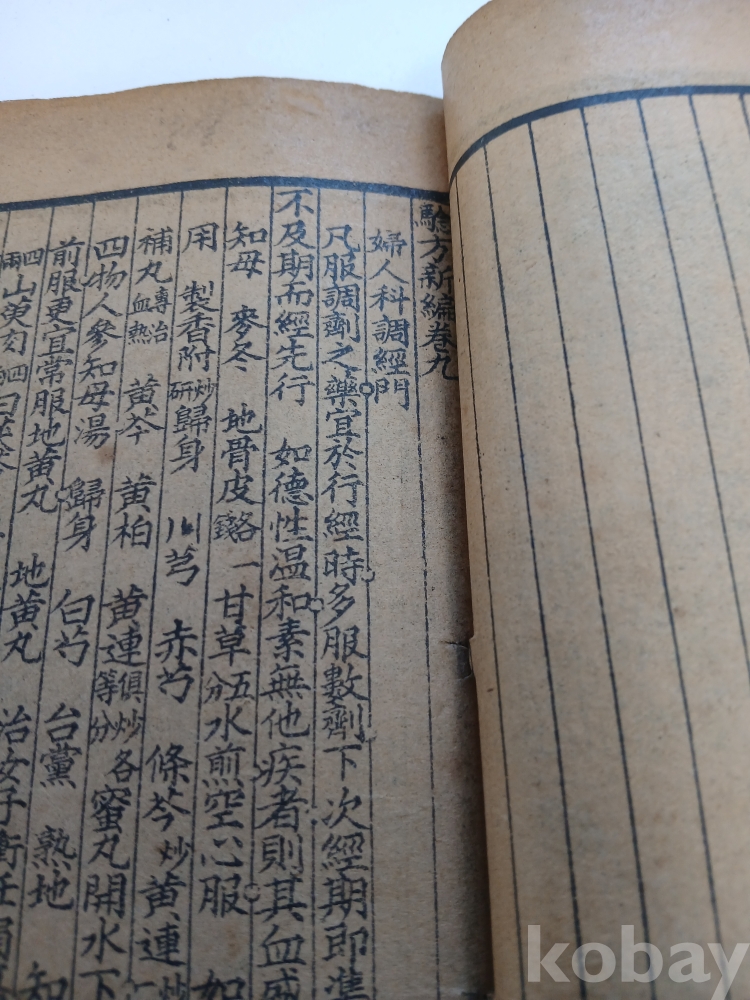 驗方新編卷九
婦人科調經門
凡服調劑之藥宜於行經時多服數劑下次經期即準
不及期而經先行 如德性溫和素無他疾者則其血盛
知母 麥冬 地骨皮各一錢 甘草五分 水煎空心服 如
用 製香附炒研 歸身 川芎 赤芍 條芩炒 黃連炒
補丸專治血熱 黃芩 黃柏 黃連俱炒各等分 蜜丸開水下
四物人參知母湯 歸身 白芍 台黨 熟地 知
前服更宜常服地黃丸 地黃丸 治女子衝任
四兩山萸肉四
kobay